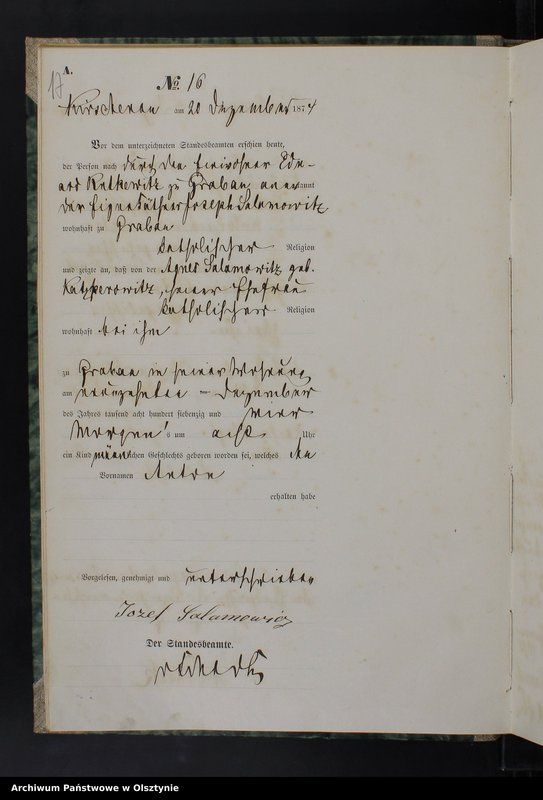 17
A.
No 16
am 20 Dezember 1874
Vor dem unterzeichneten Standesbeamten erschien heute,
der Person nach durch den Einwohner Edu-
ard Rutkewitz zu Graban anerkannt
der Eigenkäthner Joseph Salamowitz
wohnhaft zu Graban
katholischer Religion
und zeigte an, daß von der Agnes Salamowitz geb.
Katzperowitz, seiner Ehefrau
katholischer Religion
wohnhaft bei ihm
zu Graban in seiner Wohnung
am neunzehnten Dezember
des Jahres tausend acht hundert siebenzig und vier
Morgens um acht Uhr
ein Kind männlichen Geschlechts geboren worden sei, welches den
Vornamen Anton
erhalten habe
Vorgelesen, genehmigt und unterschrieben
Jozef Salamowicz
Der Standesbeamte.
Archiwum Państwowe w Olsztynie